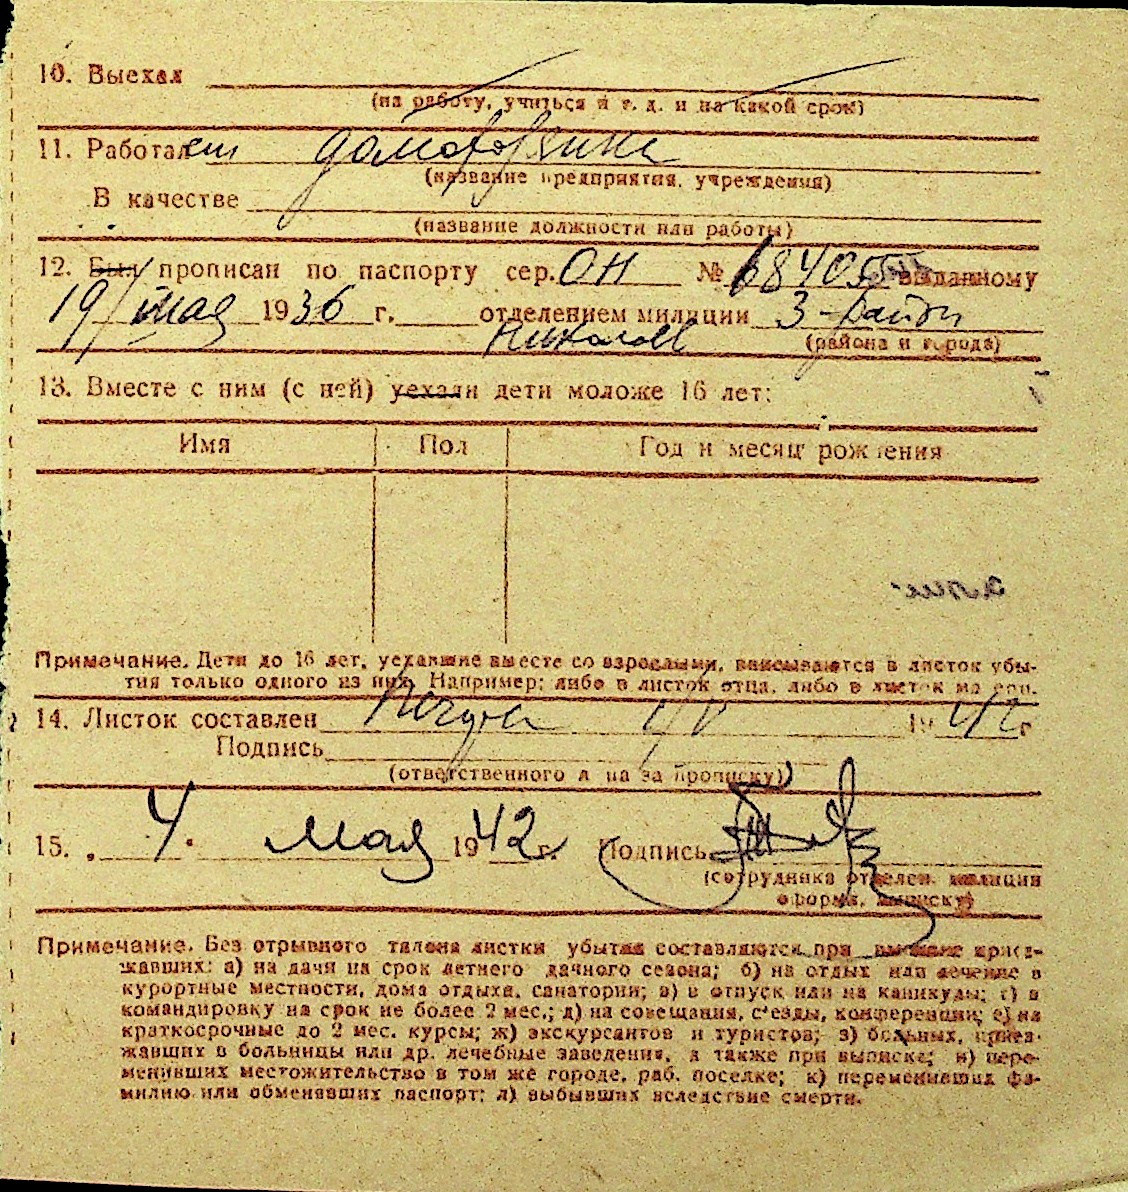 10. Выехал
(на работу, учиться и т. д. и на какой срок)
11. Работает домохозяйка
(название предприятия, учреждения)
В качестве
(название должности или работы)
12. Был прописан по паспорту сер. ОН № 684055 выданному
19/ мая 1936 г. отделением милиции 3-район
Николаев
(района и города)
13. Вместе с ним (с ней) уехали дети моложе 16 лет:
Имя Пол Год и месяц рождения
Примечание. Дети до 16 лет, уехавшие вместе со взрослыми, вписываются в листок убы-
тия только одного из них. Например: либо в листок отца, либо в листок матери.
14. Листок составлен 1942 г.
Подпись
(ответственного лица за прописку)
15. 4. мая 1942 г. Подпись
(сотрудника отделен. милиции
оформ. выписку)
Примечание. Без отрывного талона листки убытия составляются при выписке приез-
жавших: а) на дачи на срок летнего дачного сезона; б) на отдых или лечение в
курортные местности, дома отдыха, санатории; в) в отпуск или на каникулы; г) в
командировку на срок не более 2 мес.; д) на совещания, с'езды, конференции; е) на
краткосрочные до 2 мес. курсы; ж) экскурсантов и туристов; з) больных, приез-
жавших в больницы или др. лечебные заведения, а также при выписке; и) пере-
менивших местожительство в том же городе, раб. поселке; к) переменивших фа-
милию или обменявших паспорт; л) выбывших вследствие смерти.